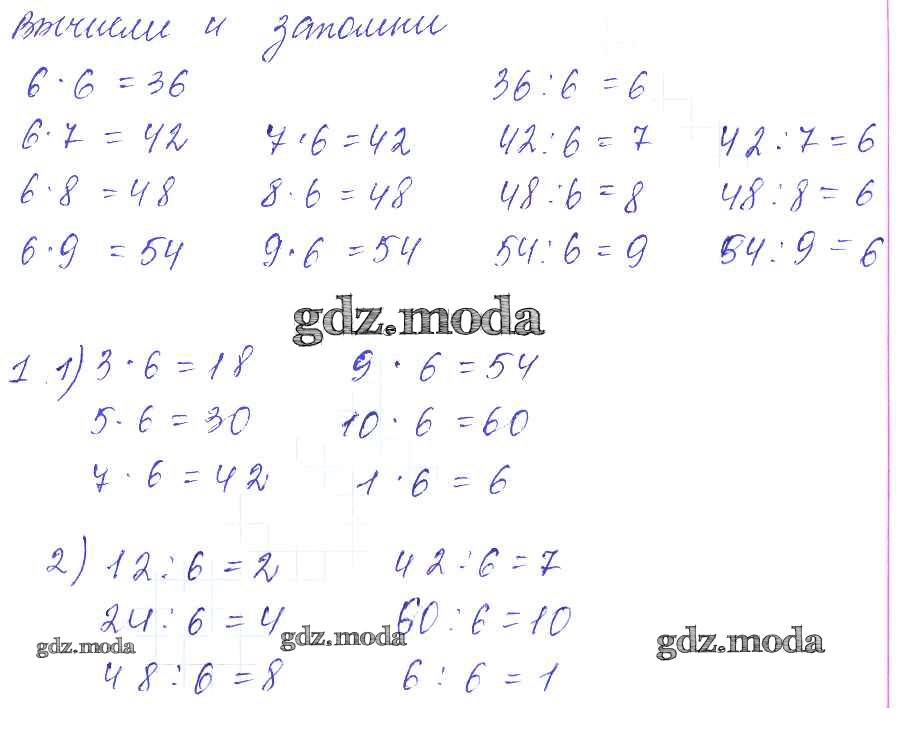 Вычисли и запомни
6 · 6 = 36 36 : 6 = 6
6 · 7 = 42 7 · 6 = 42 42 : 6 = 7 42 : 7 = 6
6 · 8 = 48 8 · 6 = 48 48 : 6 = 8 48 : 8 = 6
6 · 9 = 54 9 · 6 = 54 54 : 6 = 9 54 : 9 = 6
gdz.moda
1 1) 3 · 6 = 18 9 · 6 = 54
5 · 6 = 30 10 · 6 = 60
7 · 6 = 42 1 · 6 = 6
2) 12 : 6 = 2 42 : 6 = 7
24 : 6 = 4 60 : 6 = 10
gdz.moda gdz.moda gdz.moda
48 : 6 = 8 6 : 6 = 1